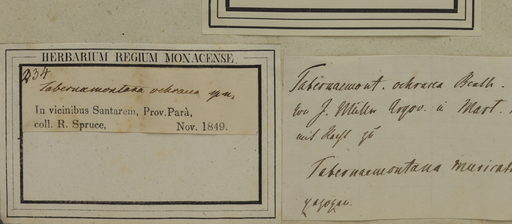 HERBARIUM REGIUM MONACENSE
234
Tabernamontana ochracea
In vicinibus Santarem, Prov. Parà,
coll. R. Spruce, Nov. 1849.
Tabernaemont. ochracea Benth.
von J. Müller Argov. in Mart.
mit Recht zu
Tabernaemontana muricat
gezogen.